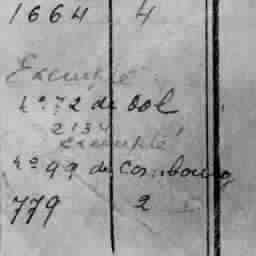 1664 4
Exempté
N° 72 de Dol
2134
exempté
N° 99 de Combourg
779 2